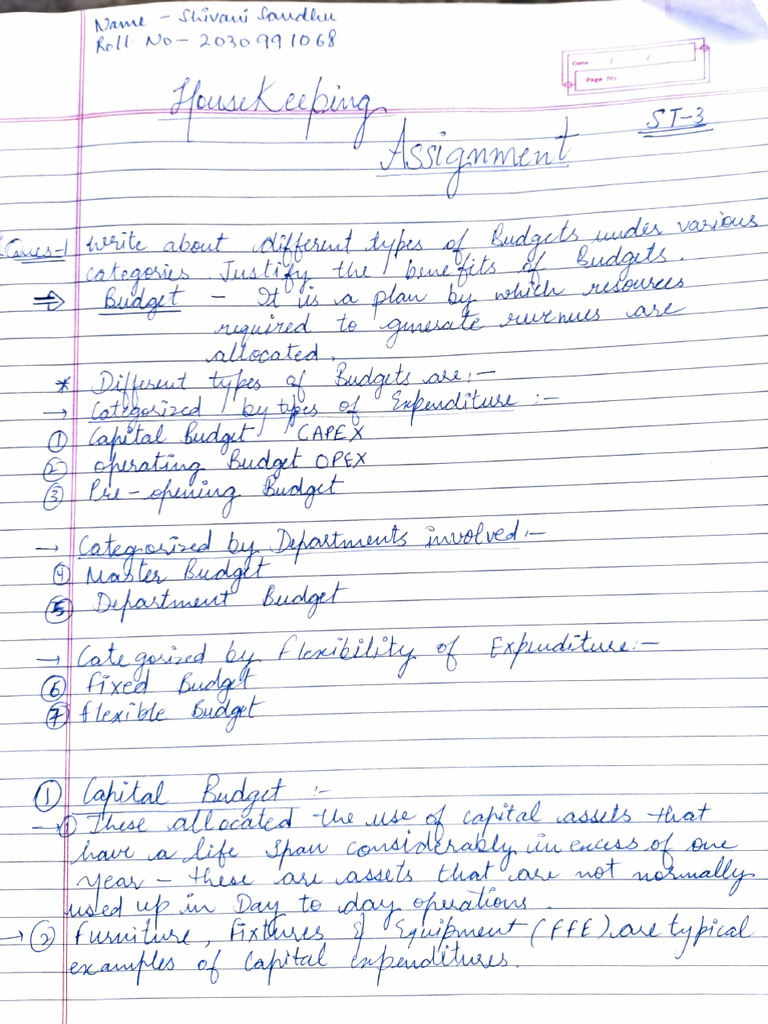 Name - Shivani Sandhu
Roll No - 2030991068
Date / /
Page No
HouseKeeping
ST-3
Assignment
Ques-1 Write about different types of Budgets under various
categories. Justify the benefits of Budgets.
⇒ Budget - It is a plan by which resources
required to generate revenues are
allocated.
* Different types of Budgets are:-
→ Categorized by types of Expenditure :-
① Capital Budget CAPEX
② operating Budget OPEX
③ Pre-opening Budget
→ Categorized by Departments involved:-
④ Master Budget
⑤ Department Budget
→ Categorized by flexibility of Expenditure:-
⑥ fixed Budget
⑦ flexible Budget
① Capital Budget :-
→ ① These allocated the use of capital assets that
have a life span considerably in excess of one
year - these are assets that are not normally
used up in Day to day operations.
→ ② Furniture, Fixtures & Equipment (FFE) are typical
examples of Capital expenditures.